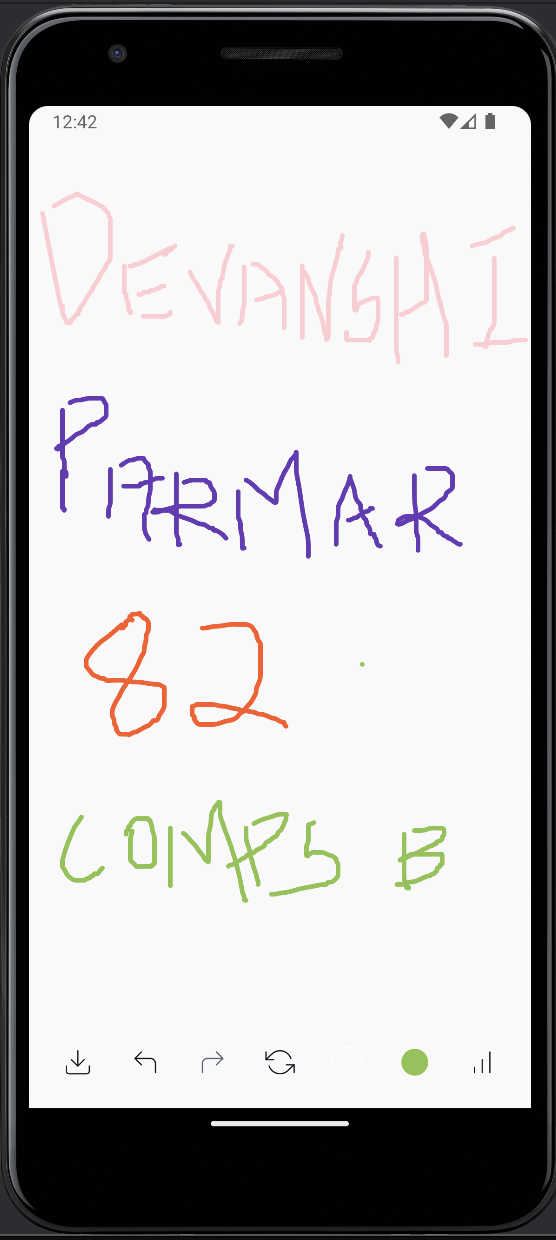 12:42
DEVANSHI
PARMAR
82
COMPS B